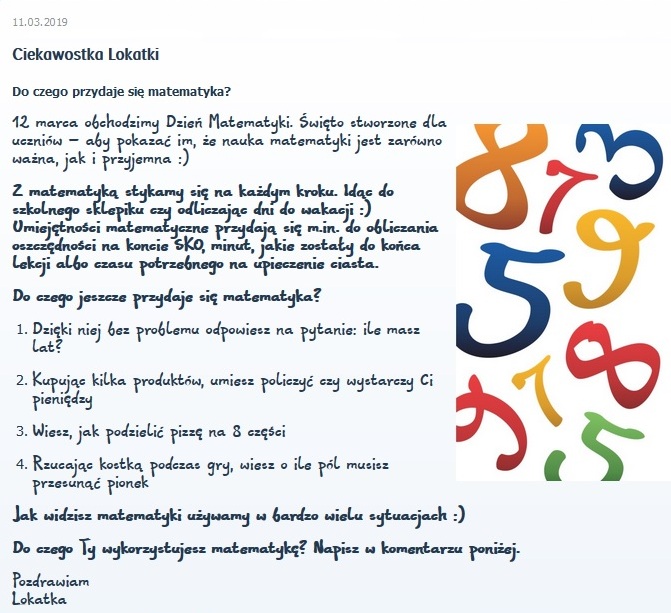 11.03.2019
Ciekawostka Lokatki
Do czego przydaje się matematyka?
12 marca obchodzimy Dzień Matematyki. Święto stworzone dla
uczniów – aby pokazać im, że nauka matematyki jest zarówno
ważna, jak i przyjemna :)
Z matematyką stykamy się na każdym kroku. Idąc do
szkolnego sklepiku czy odliczając dni do wakacji :)
Umiejętności matematyczne przydają się m.in. do obliczania
oszczędności na koncie SKO, minut, jakie zostały do końca
lekcji albo czasu potrzebnego na upieczenie ciasta.
Do czego jeszcze przydaje się matematyka?
1. Dzięki niej bez problemu odpowiesz na pytanie: ile masz
lat?
2. Kupując kilka produktów, umiesz policzyć czy wystarczy Ci
pieniędzy
3. Wiesz, jak podzielić pizzę na 8 części
4. Rzucając kostką podczas gry, wiesz o ile pól musisz
przesunąć pionek
Jak widzisz matematyki używamy w bardzo wielu sytuacjach :)
Do czego Ty wykorzystujesz matematykę? Napisz w komentarzu poniżej.
Pozdrawiam
Lokatka
8 7 3
5 9
9 7 8
5